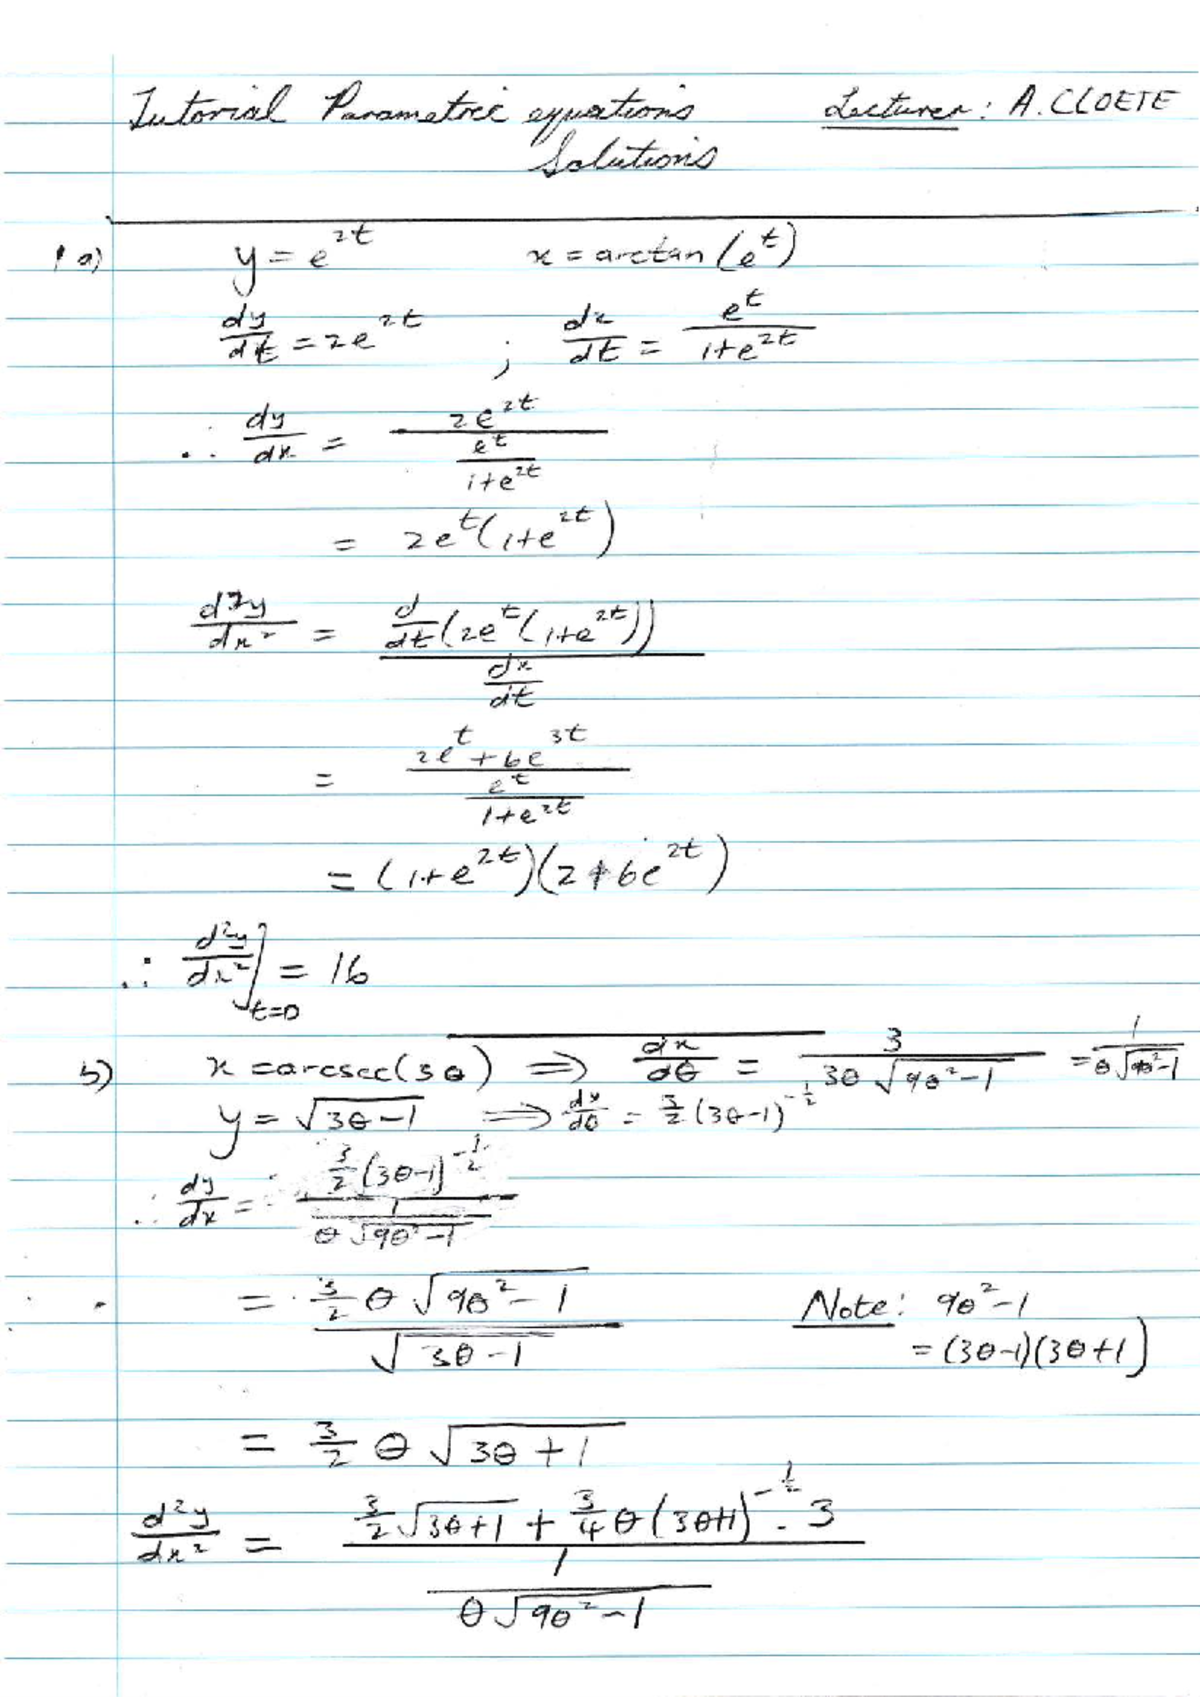 Tutorial Parametric equations Lecturer: A. CLOETE
Solutions
1 a) y = e^{2t} x = arctan(e^t)
dy/dt = 2e^{2t} ; dx/dt = e^t/(1+e^{2t})
∴ dy/dx = 2e^{2t}/(e^t/(1+e^{2t}))
= 2e^t(1+e^{2t})
d²y/dx² = d/dt(2e^t(1+e^{2t}))/(dx/dt)
= (2e^t + 6e^{3t})/(e^t/(1+e^{2t}))
= (1+e^{2t})(2+6e^{2t})
∴ d²y/dx²]_{t=0} = 16
b) x = arcsec(3θ) ⟹ dx/dθ = 3/(3θ√(9θ²-1)) = 1/(θ√(9θ²-1))
y = √(3θ-1) ⟹ dy/dθ = 3/2 (3θ-1)^{-1/2}
∴ dy/dx = (3/2 (3θ-1)^{-1/2})/(1/(θ√(9θ²-1)))
= (3/2 θ√(9θ²-1))/√(3θ-1) Note: 9θ²-1
= (3θ-1)(3θ+1)
= 3/2 θ√(3θ+1)
d²y/dx² = (3/2 √(3θ+1) + 3/4 θ(3θ+1)^{-1/2} . 3)/(1/(θ√(9θ²-1)))